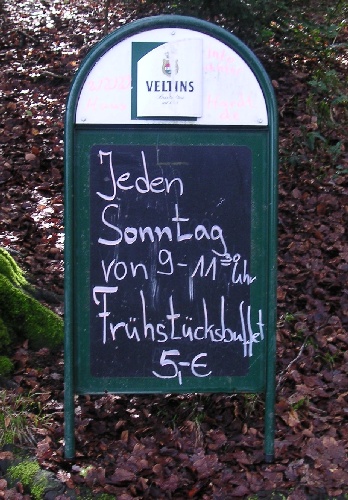 VELTINS
Jeden
Sonntag
von 9-11³⁰ Uhr
Frühstücksbuffet
5,-€